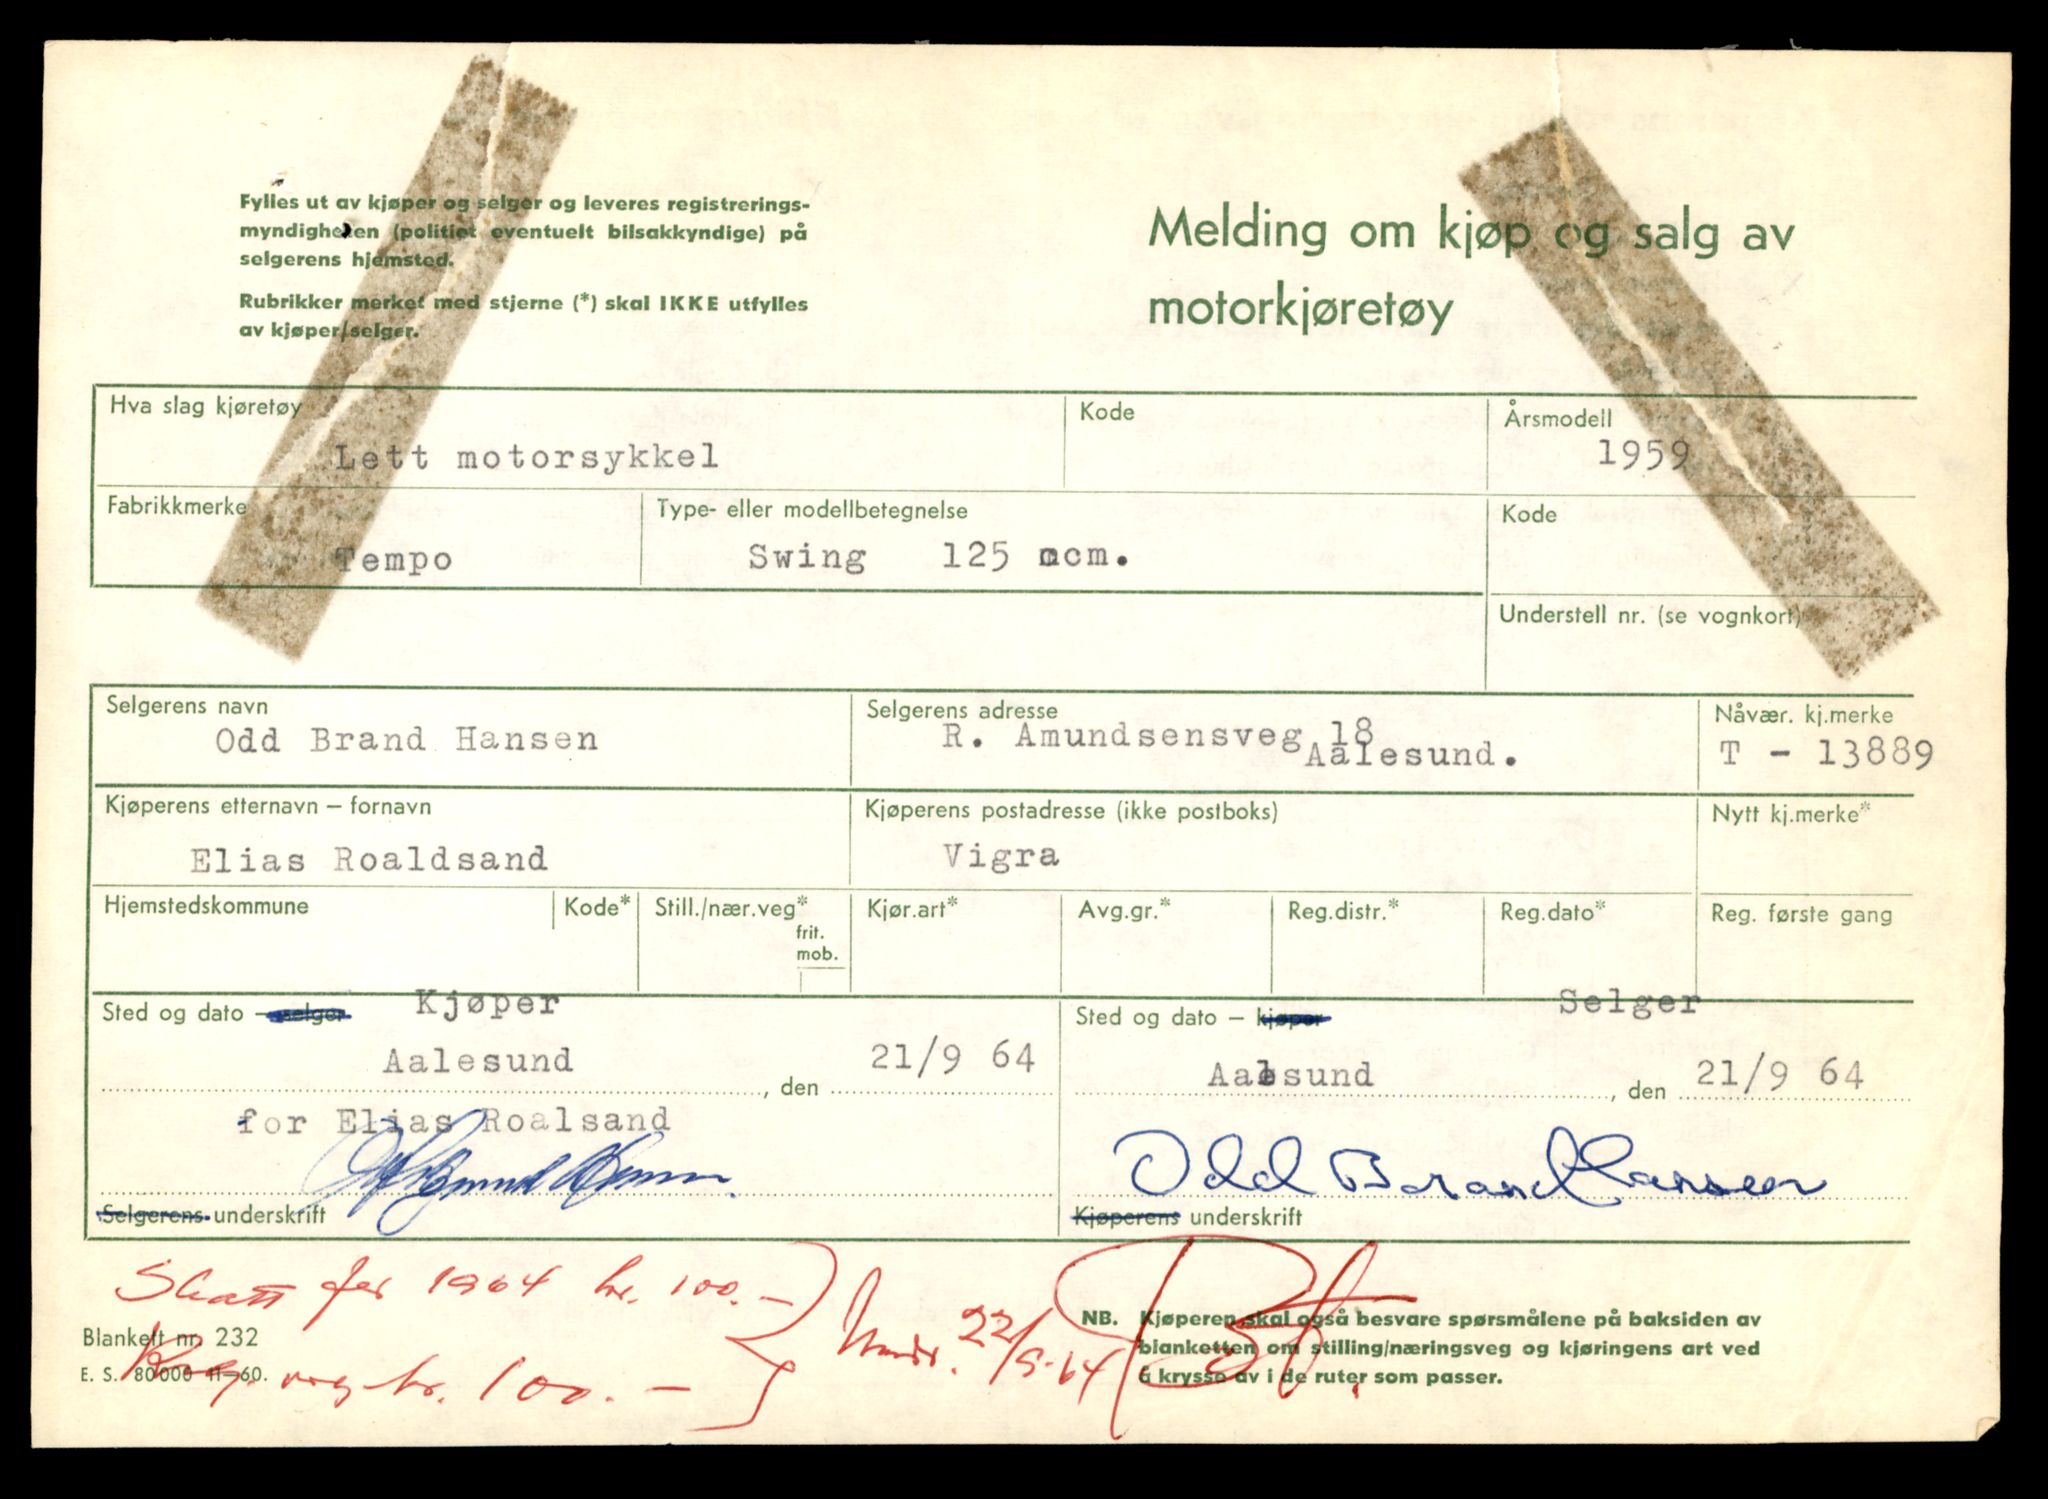 Fylles ut av kjøper og selger og leveres registrerings-
myndigheten (politiet eventuelt bilsakkyndige) på
selgerens hjemsted.
Rubrikker merket med stjerne (*) skal IKKE utfylles
av kjøper/selger.
Melding om kjøp og salg av
motorkjøretøy
Hva slag kjøretøy
Lett motorsykkel
Kode
Årsmodell
1959
Fabrikkmerke
Tempo
Type- eller modellbetegnelse
Swing 125 ccm.
Kode
Understell nr. (se vognkort)
Selgerens navn
Odd Brand Hansen
Selgerens adresse
R. Amundsensveg 18
Aalesund.
Nåvær. kj.merke
T - 13889
Kjøperens etternavn – fornavn
Elias Roaldsand
Kjøperens postadresse (ikke postboks)
Vigra
Nytt kj.merke*
Hjemstedskommune
Kode*
Still./nær.veg*
frit.
mob.
Kjør.art*
Avg.gr.*
Reg.distr.*
Reg.dato*
Reg. første gang
Sted og dato – selger Kjøper
Aalesund, den 21/9 64
for Elias Roalsand
Selgerens underskrift
Sted og dato – kjøper Selger
Aalesund, den 21/9 64
Odd Brand Hansen
Kjøperens underskrift
Skatt for 1964 kr. 100.-
kr. 100.-
22/9-64
Blankett nr. 232
E. S. 80000 11–60.
NB. Kjøperen skal også besvare spørsmålene på baksiden av
blanketten om stilling/næringsveg og kjøringens art ved
å krysse av i de ruter som passer.